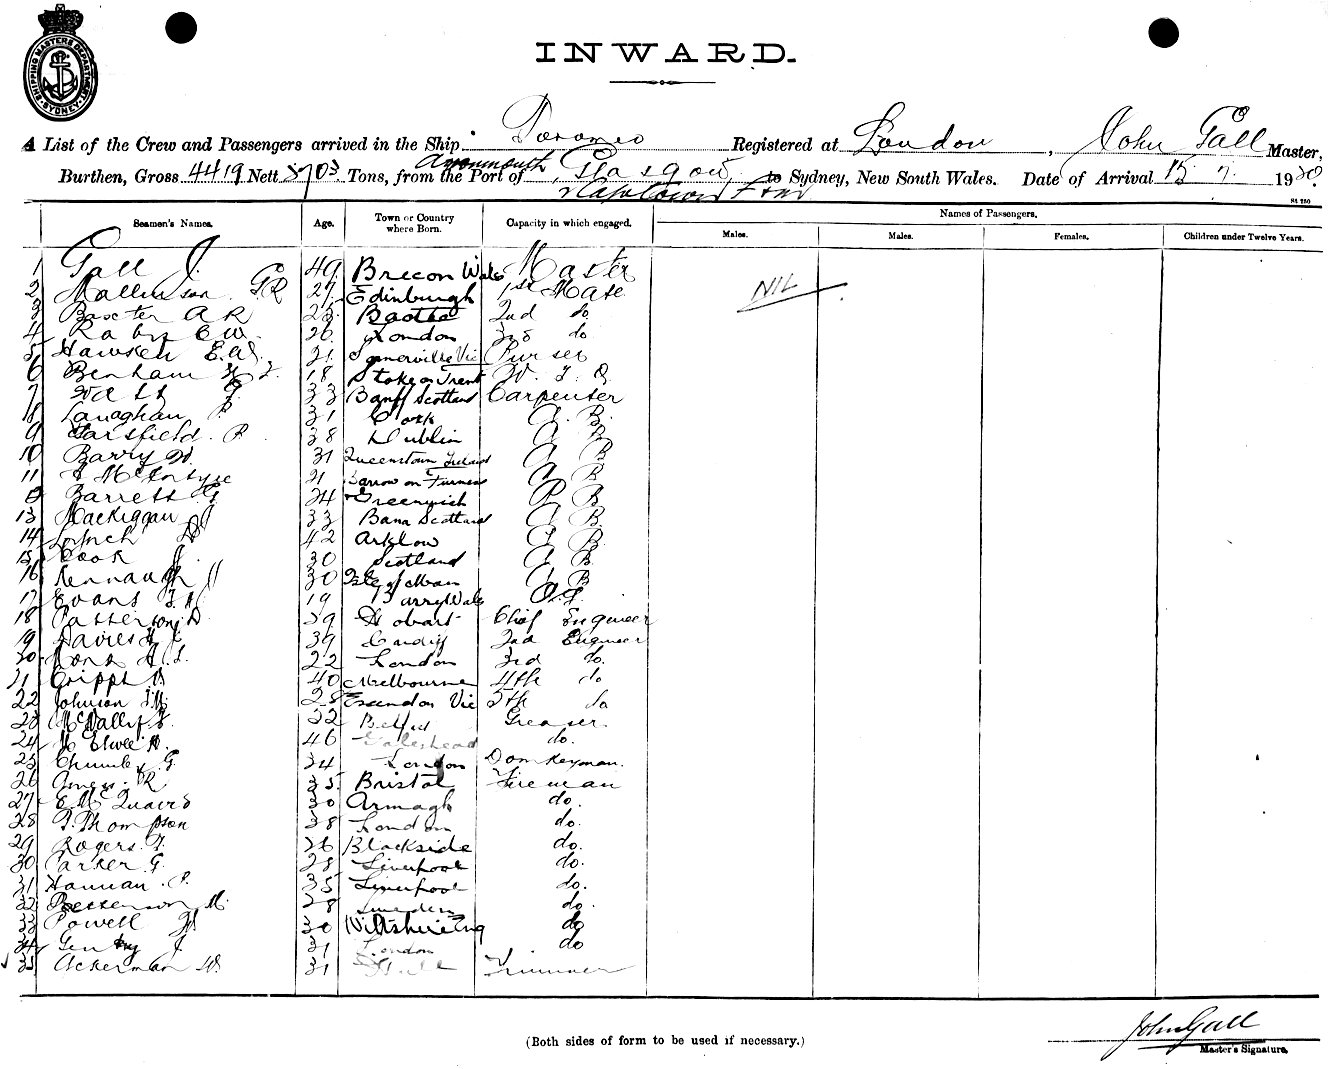 SHIPPING MASTERS DEPARTMENT SYDNEY
INWARD.
A List of the Crew and Passengers arrived in the Ship Registered at London, John Gall Master,
Burthen, Gross 4419 Nett Tons, from the Port of Avonmouth, Glasgow, to Sydney, New South Wales. Date of Arrival 15 7. 19
& Capetown
S4 250
Seamen's Names. Age. Town or Country where Born. Capacity in which engaged. Names of Passengers.
Males. Males. Females. Children under Twelve Years.
1 Gall J. 49 Brecon Wales Master
NIL
2 Mallinson GR 27 Edinburgh 1st Mate
3 Baxter A R 23 2nd do
4 Raby C W. 26 London 3rd do
5 Hawsken E.W. 21 Somerville Vic Purser
6 Benham 18 Stoke on Trent W. T. O.
7 Watt G 33 Banff Scotland Carpenter
8 Lanaghan P 31 Cork A. B.
9 Garsfield P. 38 Dublin A B
10 Barry W. 31 Queenstown Ireland A B
11 McIntyre 21 Barrow on Furness A B
Barrett G 24 Greenwich A B
13 Mackiggan J 33 Bana Scotland A B
14 Lynch D 42 Arklow A B
15 Cook J. 30 Scotland A B.
16 Kennaugh J 30 Isle of Man A B
17 Evans 19 Barry Wales O.S.
18 Patterson D 59 Hobart Chief Engineer
19 Davies 39 Cardiff 2nd Engineer
20 22 London 3rd do.
21 40 Melbourne 4th do
22 Johnson 28 Essendon Vic 5th do
23 McNally 52 Belfast Greaser.
24 McElwee 46 Gateshead do.
25 G. 34 London Donkeyman.
26 R 35. Bristol Fireman
27 E McQuaird 30 Armagh do.
28 Thompson 38 London do.
29 Rogers. 26 Blackside do.
30 Parker G. 28 Liverpool do.
31 Hannan P. 35 Liverpool do.
32 M. 28 Sweden do.
33 Powell 30 Wiltshire Eng do
34 Gentry J. 31 London do
35 Ackerman W. 31 Trimmer
(Both sides of form to be used if necessary.)
John Gall
Master's Signature.